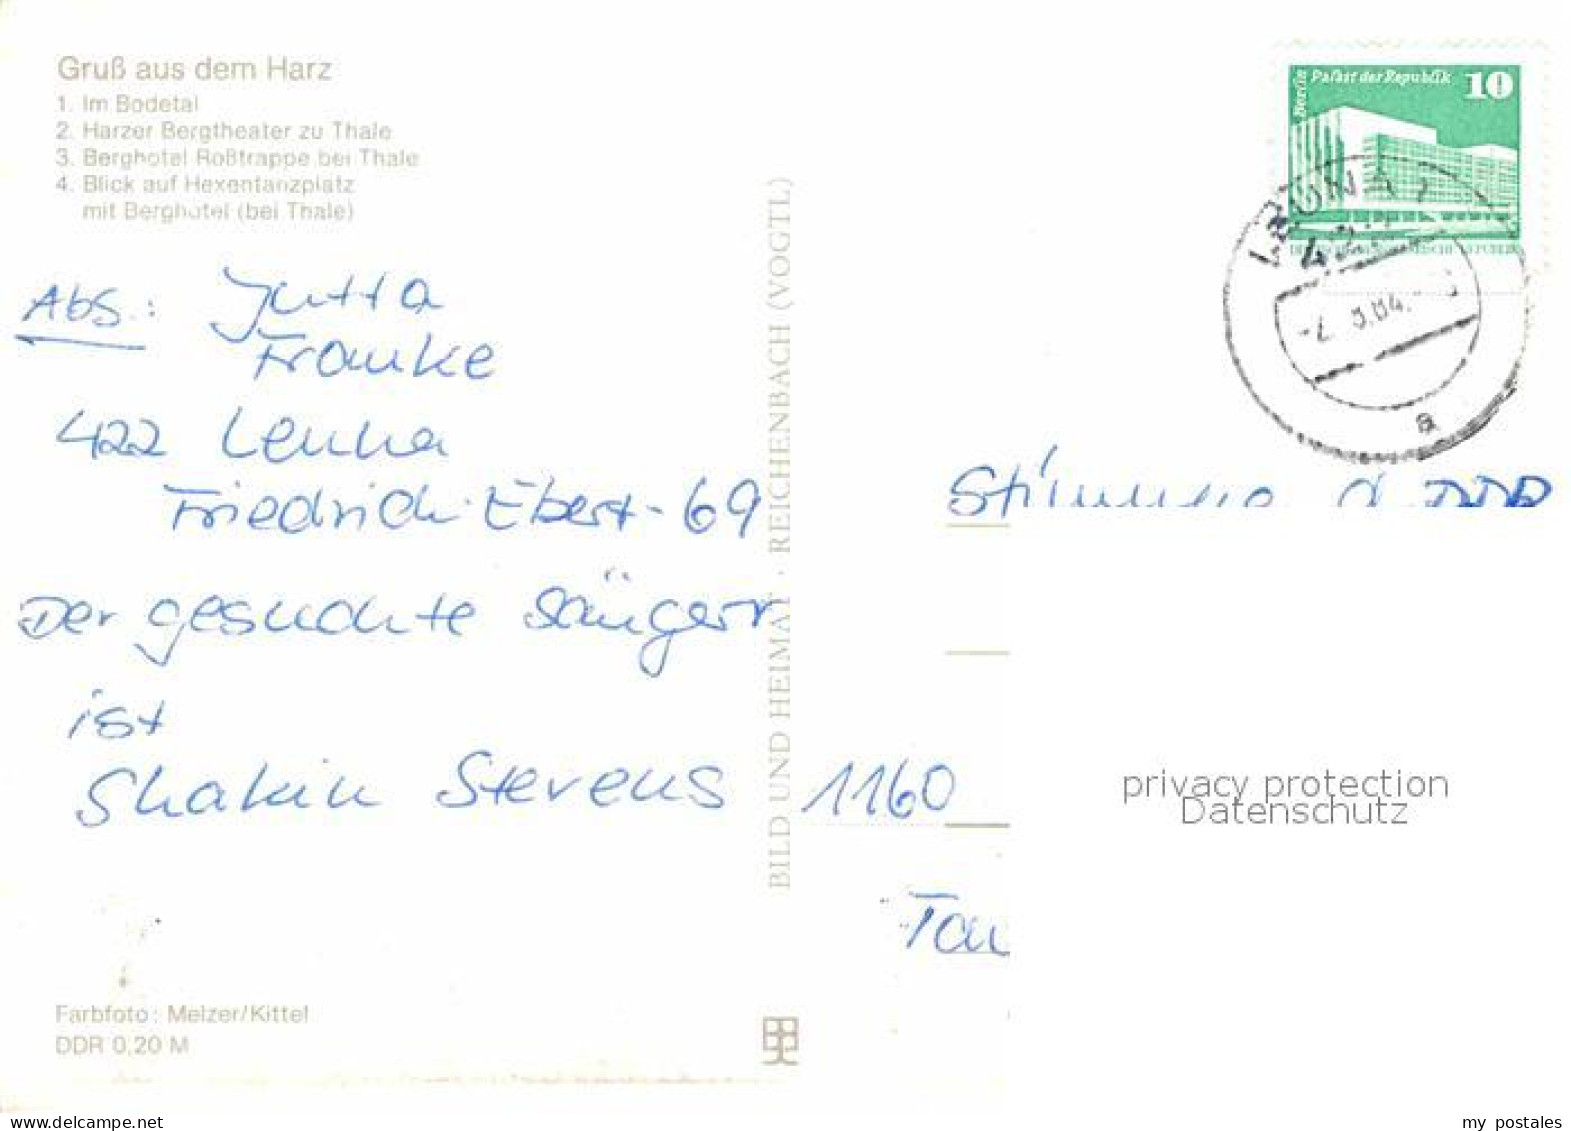 Gruß aus dem Harz
1. Im Bodetal
2. Harzer Bergtheater zu Thale
3. Berghotel Roßtrappe bei Thale
4. Blick auf Hexentanzplatz
mit Berghotel (bei Thale)
Berlin
Palast der Republik 10
LEUNA 1
422
a
Abs.: Jutta
Franke
422 Leuna
Friedrich-Ebert-69
Der gesuchte Sänger
ist
Shakin Stevens
BILD UND HEIMAT · REICHENBACH (VOGTL)
Stimme d. DDR
1160
privacy protection
Datenschutz
Farbfoto: Melzer/Kittel
DDR 0,20 M
www.delcampe.net
my_postales